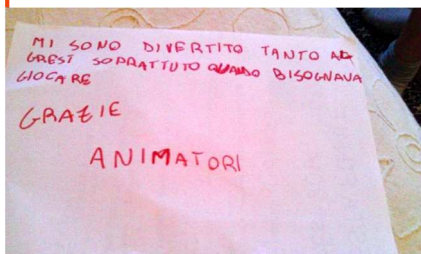 MI SONO DIVERTITO TANTO AL
GREST SOPRATTUTO QUANDO BISOGNAVA
GIOCARE
GRAZIE
ANIMATORI